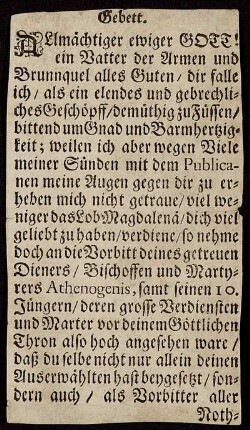 Gebett.
ALmächtiger ewiger GOTT!
ein Vatter der Armen und
Brunnquel alles Guten/ dir falle
ich/ als ein elendes und gebrechli-
ches Geschöpff/ demüthig zu Füssen/
bittend um Gnad und Barmhertzig-
keit; weilen ich aber wegen Viele
meiner Sünden mit dem Publica-
nen meine Augen gegen dir zu er-
heben mich nicht getraue/ viel we-
niger das Lob Magdalenä/ dich viel
geliebt zu haben/ verdiene/ so nehme
doch an die Vorbitt deines getreuen
Dieners/ Bischoffen und Marty-
rers Athenogenis, samt seinen 10.
Jüngern/ deren grosse Verdiensten
und Marter vor deinem Göttlichen
Thron also hoch angesehen ware/
daß du selbe nicht nur allein deinen
Auserwählten hast beygesetzt/ son-
dern auch/ als Vorbitter aller
Noth-